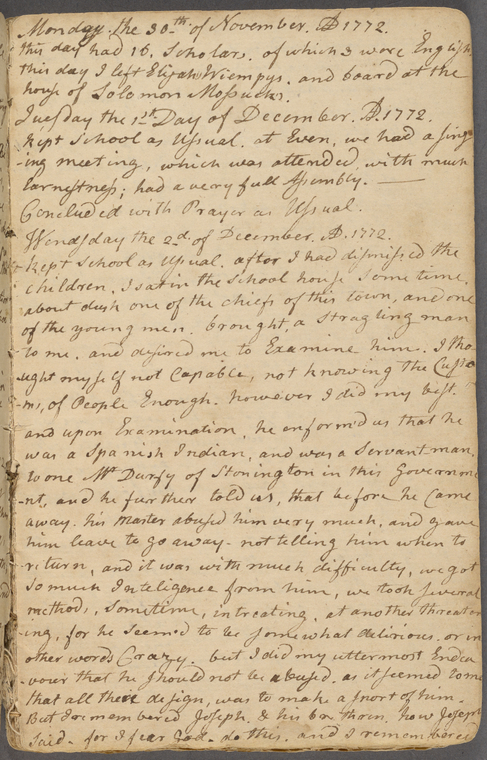 Monday. the 30th of November. AD 1772.
this day had 16. Scholars. of which 3 were English
this day I left Elijah Wiempys. and board at the
house of Solomon Mossucks.
Tuesday the 1st Day of December. AD. 1772.
Kept School as Usual. at Even, we had a sing
-ing meeting, which was attended with much
Earnestness; had a very full Assembly. —
Concluded with Prayer as Usual.
Wendsday the 2d. of December. AD. 1772.
Kept School as Usual. after I had dismissed the
Children, I sat in the School house some time.
about dusk one of the chiefs of this town, and one
of the young men. brought, a Stragling man
to me. and desired me to Examine him. I tho
ught myself not Capable, not knowing the Custo
-ms, of People Enough. however I did my best.
and upon Examination, he enformd us that he
was a Spanish Indian, and was a Servant man,
to one Mr Durfy of Stonington in this Governme
-nt, and he further told us, that before he Came
away. his Master abused him very much, and gave
him leave to go away - not telling him when to
return, and it was with much difficulty, we got
so much Inteligence from him, we took several
methods, sometime, intreating. at another threat
-ing, for he Seemed to be somewhat delirious. or in
other words Crazy. but I did my uttermost Endea
-vour that he should not be abused. as it seemed to me
that all their design, was to make a sport of him.
But I remembered Joseph. & his brethren. how Joseph
said. for I fear God. do this. and I remembered